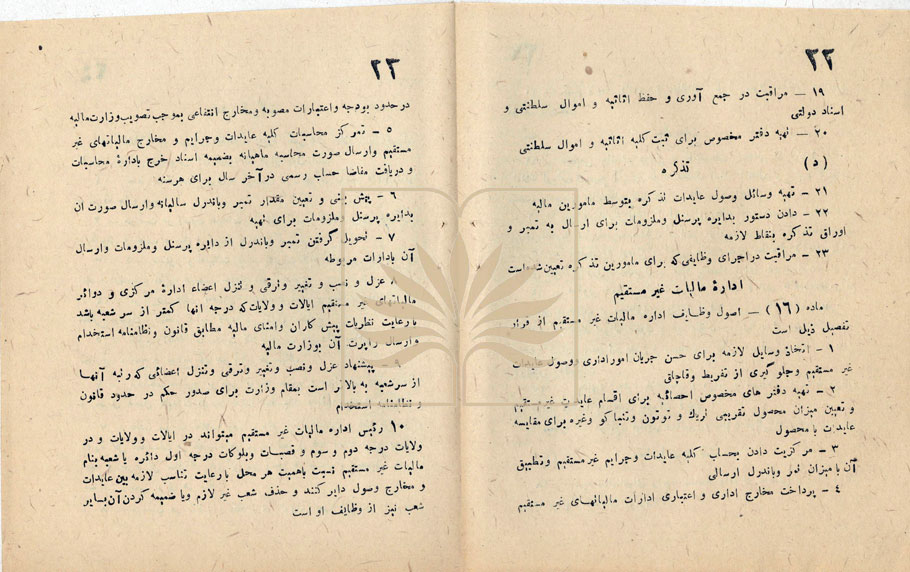 ۲۲
۱۹ – مراقبت در جمع آوری و حفظ اثاثیه و اموال سلطنتی و
اسناد دولتی
۲۰ – تهیه دفتر مخصوص برای ثبت کلیه اثاثیه و اموال سلطنتی
(د) تذکره
۲۱ – تهیه وسائل وصول عایدات تذکره بتوسط مامورین مالیه
۲۲ – دادن دستور بدایره پرسنل وملزومات برای ارسال به تمبر و
اوراق تذکره بنقاط لازمه
۲۳ – مراقبت دراجرای وظایفی که برای مامورین تذکره تعیین شده است
ادارهٔ مالیات غیر مستقیم
ماده (۱۶) – اصول وظایف اداره مالیات غیر مستقیم از قرار
تفصیل ذیل است
۱ – اتخاذ وسایل لازمه برای حسن جریان اموراداری ووصول عایدات
غیر مستقیم وجلوگیری از تفریط وقاچاق
۲ – تهیه دفتر های مخصوص احصائیه برای اقسام عایدات غیرمستقیم
و تعیین میزان محصول تقریبی تریاك و توتون وتنباکو وغیره برای مقایسه
عایدات با محصول
۳ – مرکزیت دادن بحساب کلیه عایدات وجرایم غیرمستقیم وتطبیق
آن با میزان تمبر وباندرل ارسالی
٤ – پرداخت مخارج اداری و اعتباری ادارات مالیاتهای غیر مستقیم
۲۳
در حدود بودجه واعتبارات مصوبه ومخارج انتفاعی بموجب تصویب وزارت مالیه
۵ – تمرکز محاسبات کلیه عایدات وجرایم و مخارج مالیاتهای غیر
مستقیم وارسال صورت محاسبه ماهیانه بضمیمه اسناد خرج بادارهٔ محاسبات
و دریافت مفاصا حساب رسمی در آخر سال برای هرسنه
۶ – پیش بینی و تعیین مقدار تمبر وباندرل سالیانه وارسال صورت ان
بدایره پرسنل وملزومات برای تهیه
۷ – تحویل گرفتن تمبر وباندرل از دایره پرسنل وملزومات وارسال
آن بادارات مربوطه
۸ – عزل و نصب و تغییر وترقی و تنزل اعضاء ادارهٔ مرکزی و دوائر
مالیاتهای غیر مستقیم ایالات وولایات که درجه انها کمتر از سر شعبه باشد
با رعایت نظریات پیش کاران وامنای مالیه مطابق قانون ونظامنامه استخدام
وارسال راپرت آن بوزارت مالیه
۹ – پیشنهاد عزل ونصب وتغییر وترقی وتنزل اعضائی که رتبه آنها
از سرشعبه به بالا تر است بمقام وزارت برای صدور حکم در حدود قانون
و نظامنامه استخدام
۱۰ رئیس اداره مالیات غیر مستقیم میتواند در ایالات وولایات و در
ولایات درجه دوم و سوم و قصبات وبلوکات درجه اول دائره یا شعبه بنام
مالیات غیر مستقیم نسبت باهمیت هر محل با رعایت تناسب لازمه بین عایدات
و مخارج وصول دایر کنند و حذف شعب غیر لازم ویا ضمیمه کردن آن بسایر
شعب نیز از وظایف او است